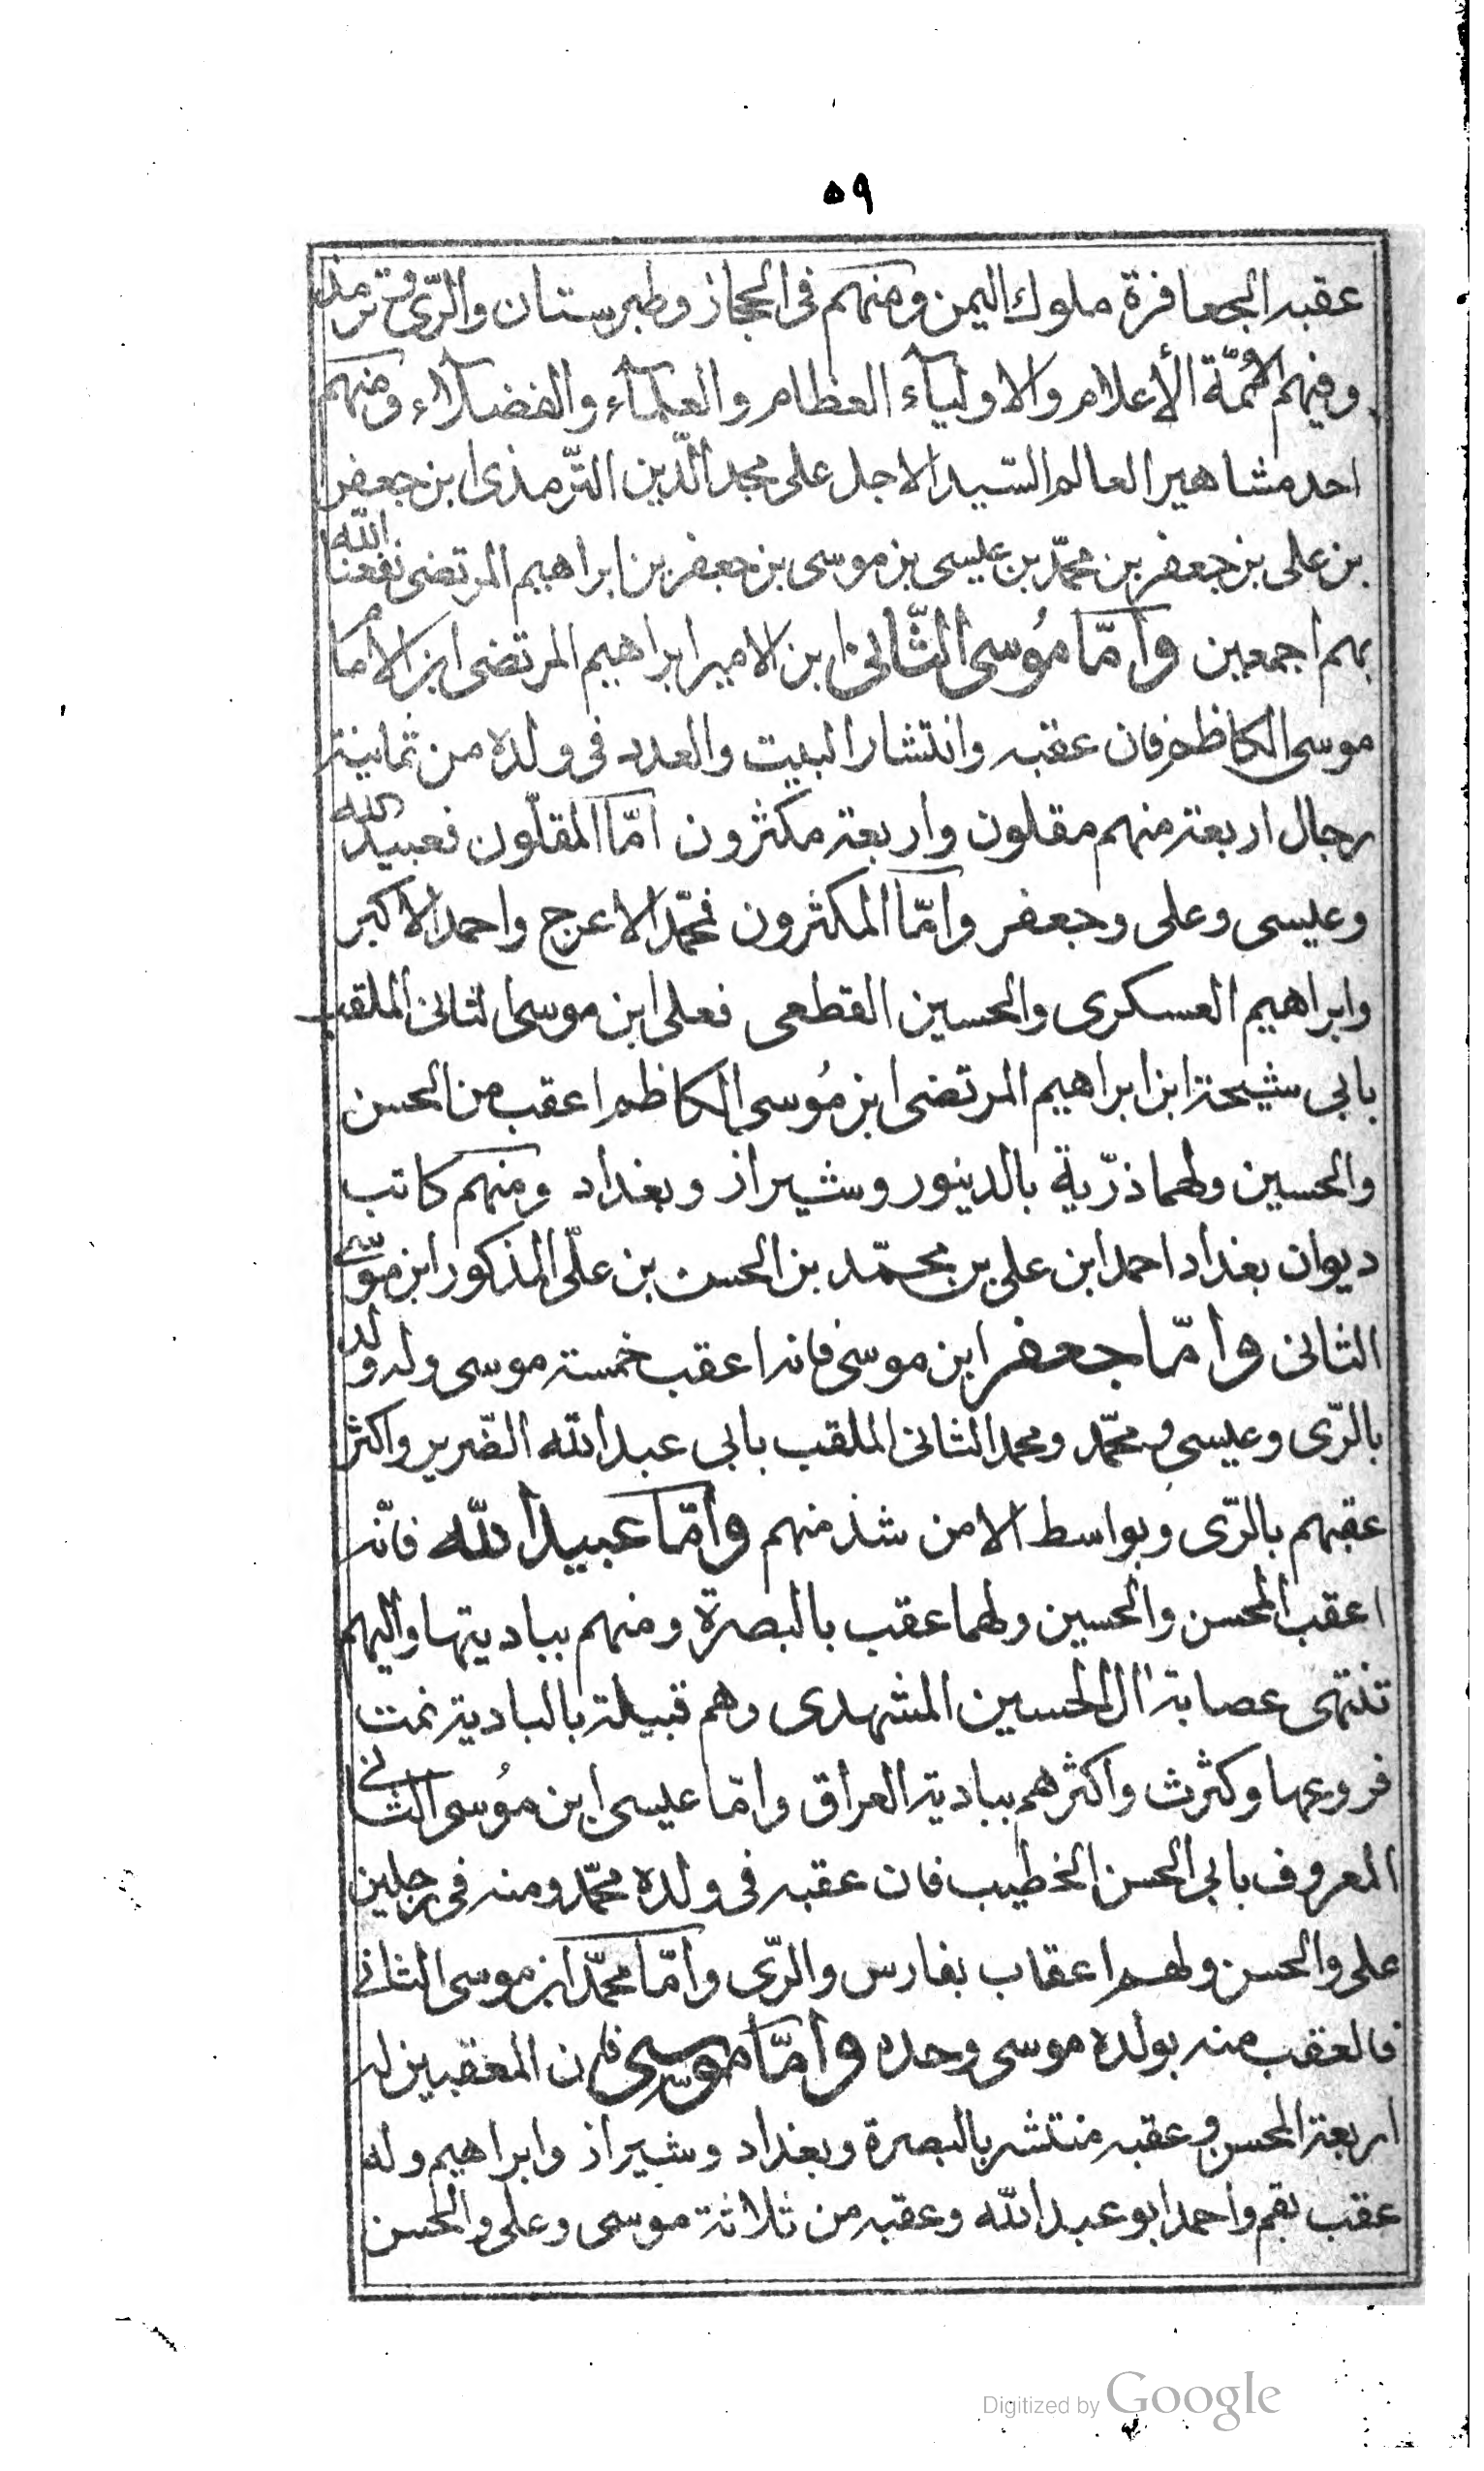 ٥٩
عقبه الجعافرة ملوك اليمن ومنهم فى الحجاز وطبرستان والرّى وترمذ
وفيهم الائمّة الأعلام والاوليآء العظام والعلمآء والفضلآء ومنهم
احد مشاهير العالم السّيد الاجل على مجد الدّين التّرمذى ابن جعفر
بن على بن جعفر بن محمّد بن عليسى بن موسى بن جعفر بن ابراهيم المرتضى نفعنا الله
بهم اجمعين وامّا مُوسى الثّانى ابن الامير ابراهيم المرتضى ابن الامام
موسى الكاظم فان عقبه وانتشار البيت والعدد فى ولده من ثمانية
رجال اربعة منهم مقلون واربعة مكثرون امّا المقلّون فعبيد الله
وعليسى وعلى وجعفر وامّا المكثرون فمحمّد الاعرج واحمد الاكبر
وابراهيم العسكرى والحسين القطعى فعلى ابن موسى الثانى الملقب
بابى شيحة ابن ابراهيم المرتضى ابن مُوسى الكاظم اعقب من الحسن
والحسين ولهما ذرّية بالدينور وشيراز وبغداد ومنهم كاتب
ديوان بغداد احمد ابن على بن محمّد بن الحسن بن علّى المذكور ابن موسى
الثانى وامّا جعفر ابن موسى فانه اعقب خمسته موسى وله ولد
بالرّى وعليسى ومحمّد ومحمد الثانى الملقب بابى عبد الله الضّرير واكثر
عقبهم بالرّى وبواسط الا من شذ منهم وامّا عبيد الله فانّه
اعقب المحسن والحسين ولهما عقب بالبصرة ومنهم بباديتها واليهم
تنتهى عصابة ال الحسين المشهدى وهم قبيلة بالبادية نمت
فروعها وكثرث واكثرهم ببادية العراق وامّا عليسى ابن مُوسى الثانى
المعروف بابى الحسن الخطيب فان عقبه فى ولده محمّد ومنه فى رجلين
على والحسن ولهم اعقاب بفارس والرّى وامّا محمّد ابن موسى الثانى
فالعقب منه بولده موسى وحده وامّا موسى فان المعقبين له
اربعة المحسن وعقبه منتشر بالبصرة وبغداد وشيراز وابراهيم وله
عقب بقم واحمد ابو عبد الله وعقبه من ثلاثة موسى وعلى والحسن
Digitized by Google